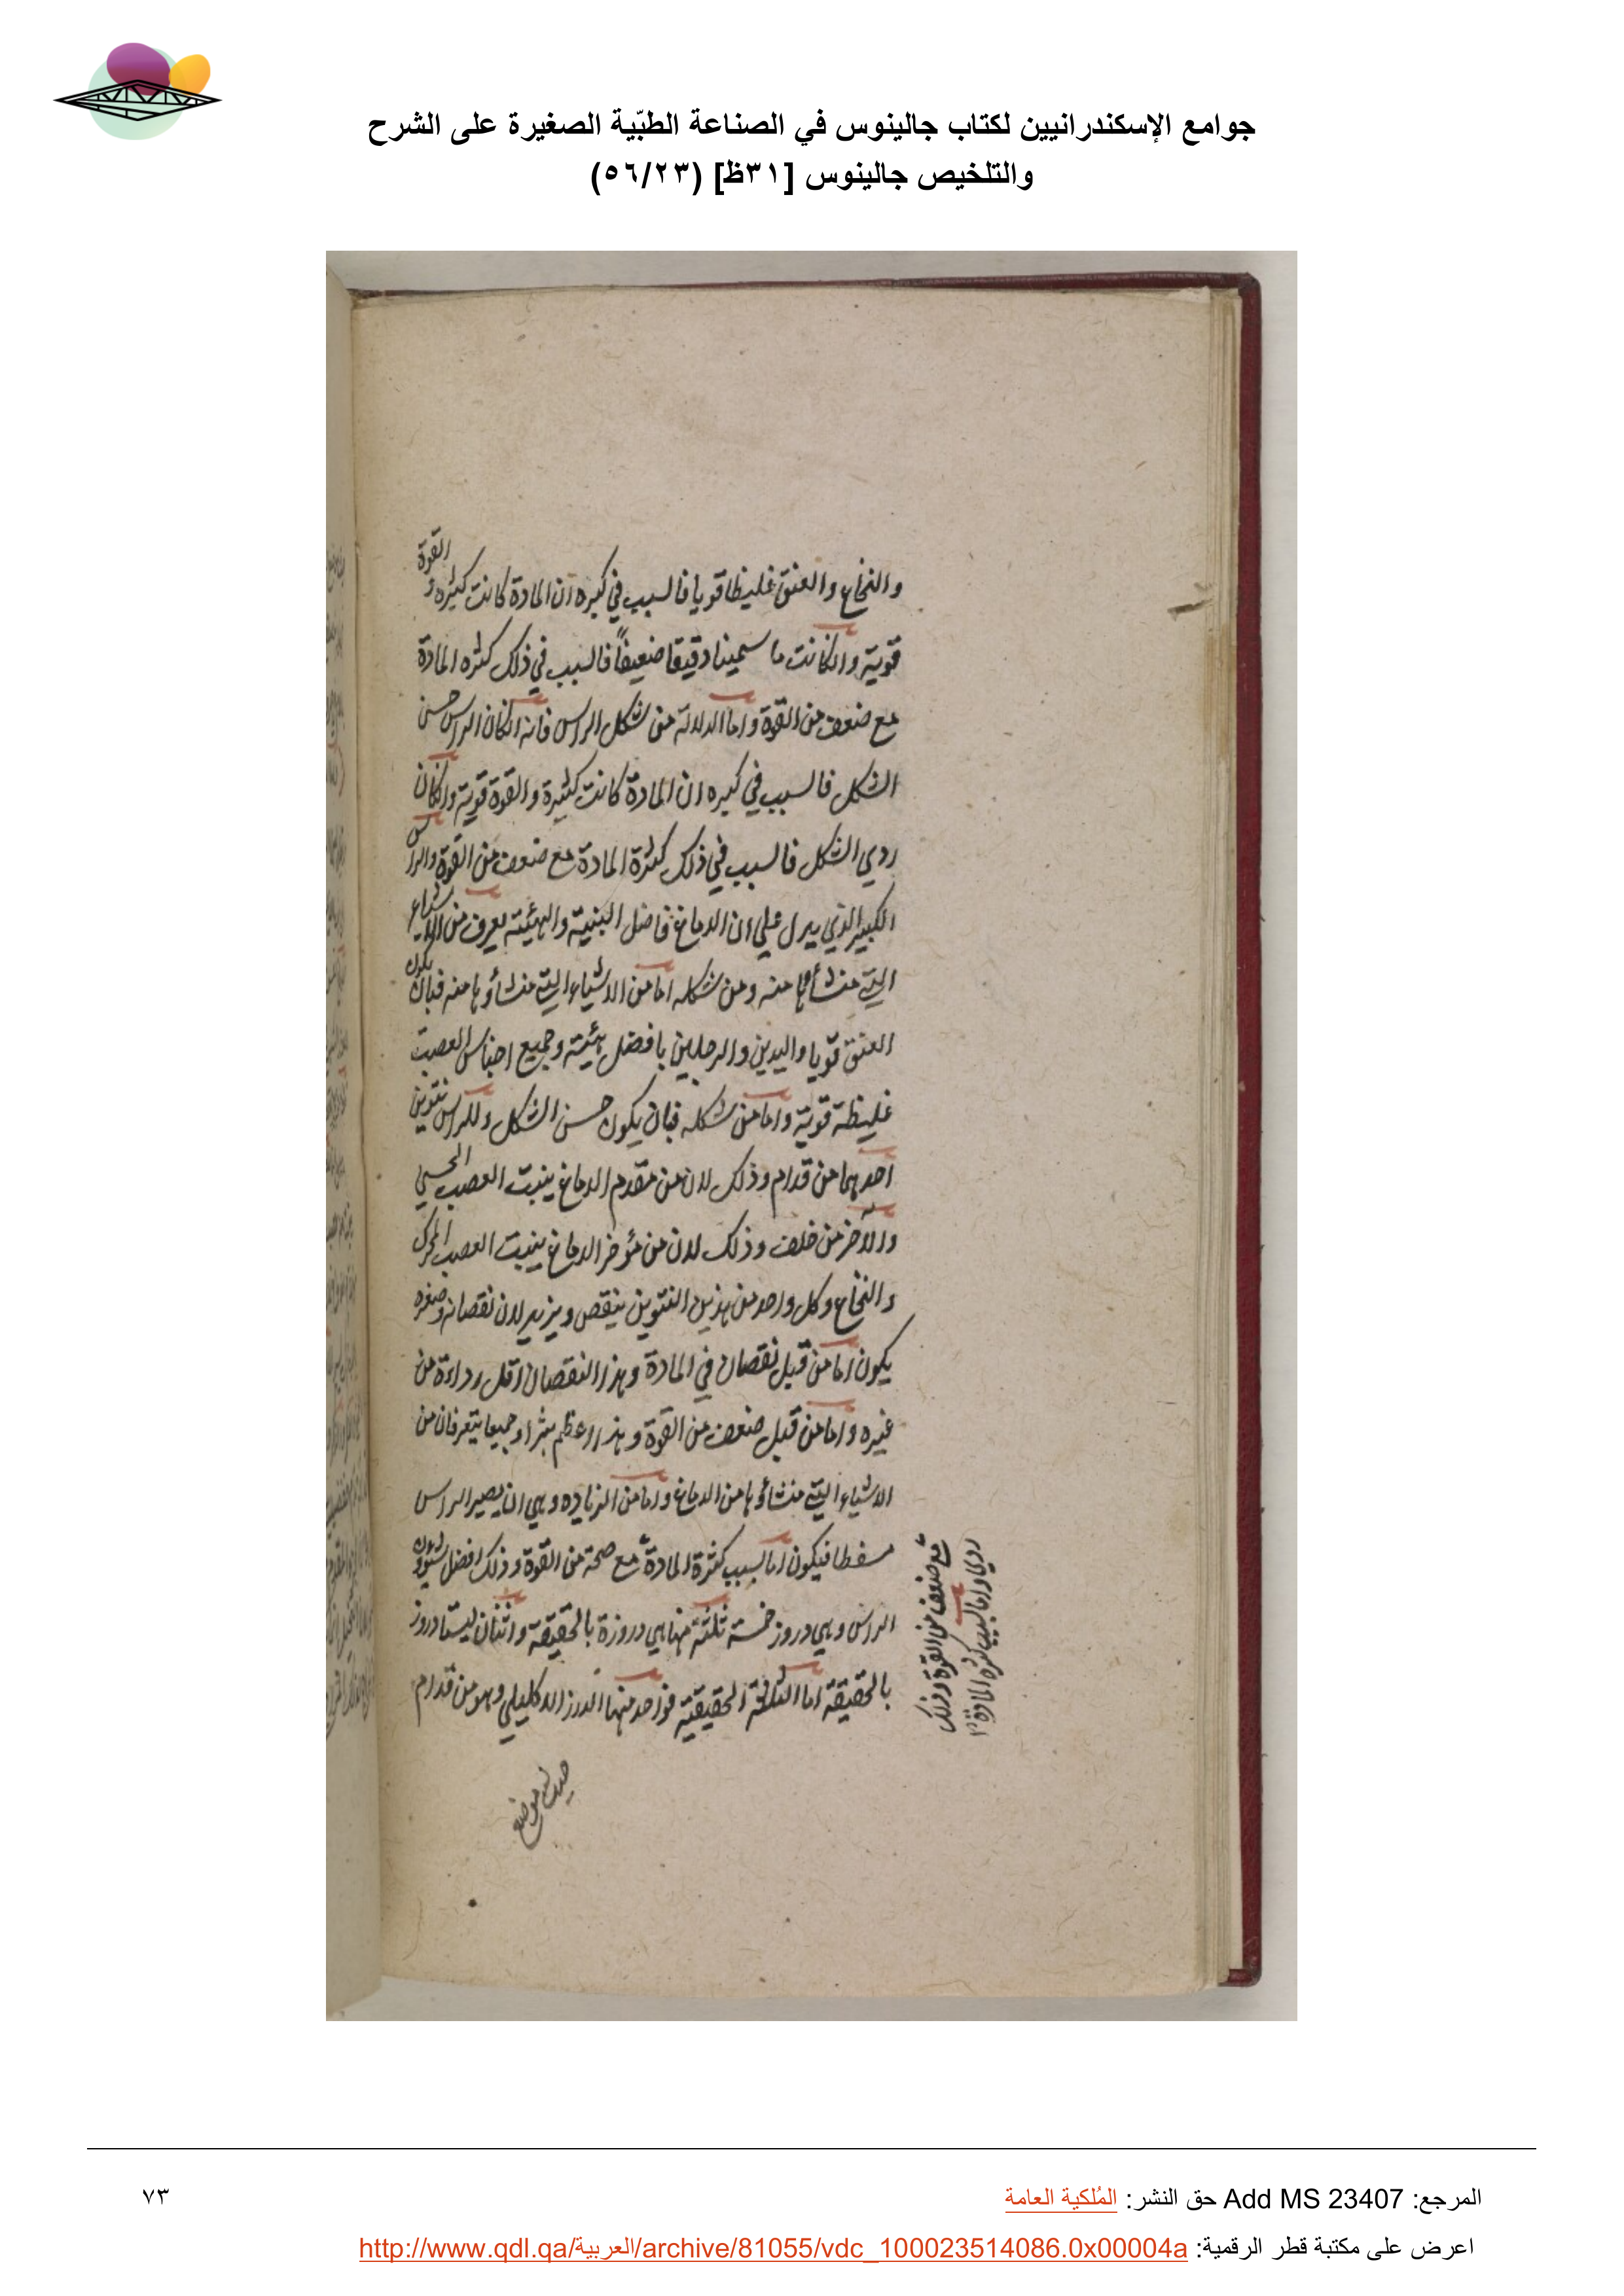 جوامع الإسكندرانيين لكتاب جالينوس في الصناعة الطبّية الصغيرة على الشرح
والتلخيص جالينوس [٣١ظ] (٥٦/٢٣)
والنخاع والعنق غليظا قويا فالسبب في كبره ان المادة كانت كثيره و القوة
قوية وانكانت ما سمينا دقيقا ضعيفاً فالسبب في ذلك كثره المادة
مع ضعف من القوة واما الدلالة من شكل الراس فانه انكان الراس حسن
الشكل فالسبب في كبره ان المادة كانت كثيرة والقوة قوية وانكان
ردي الشكل فالسبب في ذلك كثرة المادة مع ضعف من القوة والراس
الكبير الذي يدل علي ان الدماغ فاضل البنية والهيئة يعرف من الاشياء
التي منشأوها منه ومن شكله اما من الاشياء التي منشأوها منه فبان يكون
العنق قويا واليدين والرجلين بافضل هيئة وجميع اجناس العصب
غليظة قوية واما من شكله فبان يكون حسن الشكل وللراس نتوين
احدهما من قدام وذلك لان من مقدم الدماغ ينبت العصب الحسي
والآخر من خلف وذلك لان من مؤخر الدماغ ينبت العصب المحرك
والنخاع وكل واحد من هذين النتوين ينقص ويزيد لان نقصانه وصغره
يكون اما من قبل نقصان في المادة وهذا النقصان اقل رداءة من
غيره واما من قبل ضعف من القوة وهذا اعظم شرا وجميعا يتعرفان من
الاشياء التي منشأوها من الدماغ واما من الزياده وهي ان يصير الراس
مسفطا فيكون اما لسبب كثرة المادة مع صحة من القوة وذلك افضل
الراس وهي دروز خمسة ثلثة منها هي دروزة بالحقيقة واثنان ليستا دروز
بالحقيقة اما الثلثة الحقيقية فواحد منها الدرز الاكليلي وهو من قدام
مع ضعف من القوة وذلك
ردي واما لسبب كثره المادة
المرجع: Add MS 23407 حق النشر: المُلكية العامة
٧٣
اعرض على مكتبة قطر الرقمية: http://www.qdl.qa/العربية/archive/81055/vdc_100023514086.0x00004a